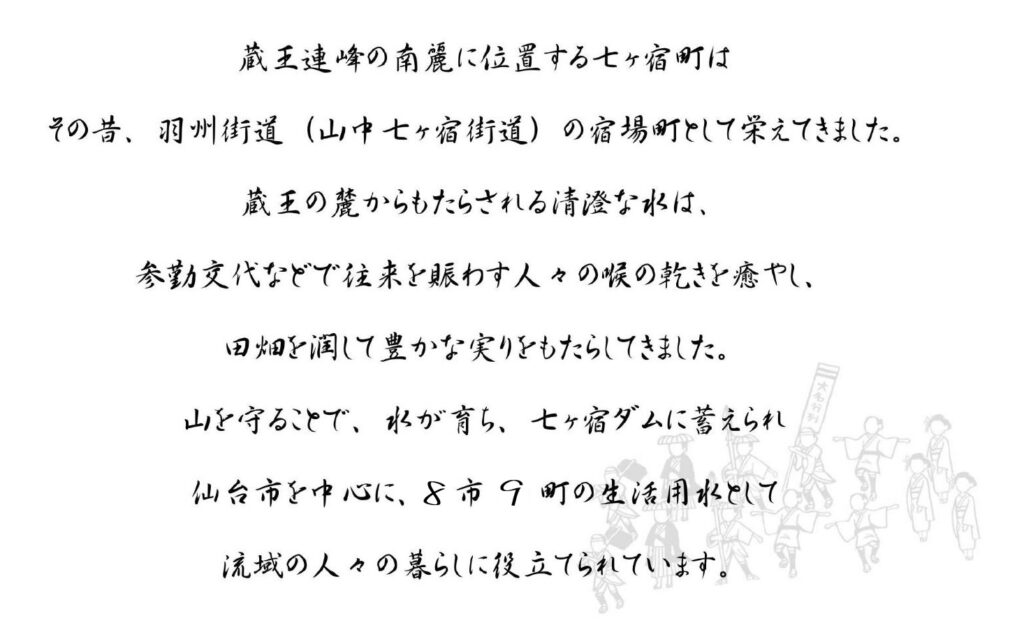 蔵王連峰の南麗に位置する七ヶ宿町は
その昔、羽州街道（山中七ヶ宿街道）の宿場町として栄えてきました。
蔵王の麓からもたらされる清澄な水は、
参勤交代などで往来を賑わす人々の喉の乾きを癒やし、
田畑を潤して豊かな実りをもたらしてきました。
山を守ることで、水が育ち、七ヶ宿ダムに蓄えられ
仙台市を中心に、8市9町の生活用水として
流域の人々の暮らしに役立てられています。
大名行列